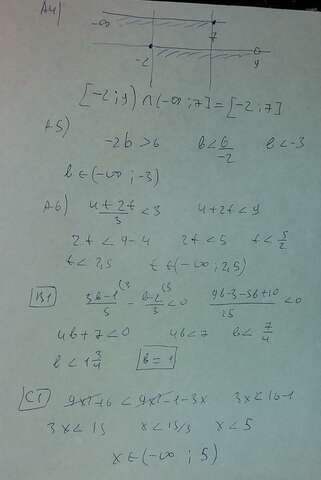 A4)
-∞ 7
-2 9
[-2;9) ∩ (-∞;7] = [-2;7]
A5)
-2b > 6 b < 6/-2 b < -3
b ∈ (-∞; -3)
A6)
4+2t/3 < 3 4+2t < 9
2t < 9-4 2t < 5 t < 5/2
t < 2,5 t ∈ (-∞; 2,5)
B1 3b-1/5 (3 - b-2/3 (5 < 0 9b-3-5b+10/15 < 0
4b+7 < 0 4b < 7 b < 7/4
b < 1 3/4 b = 1
C1 9x²+6 < 9x²-1-3x 3x < 16-1
3x < 15 x < 15/3 x < 5
x ∈ (-∞; 5)